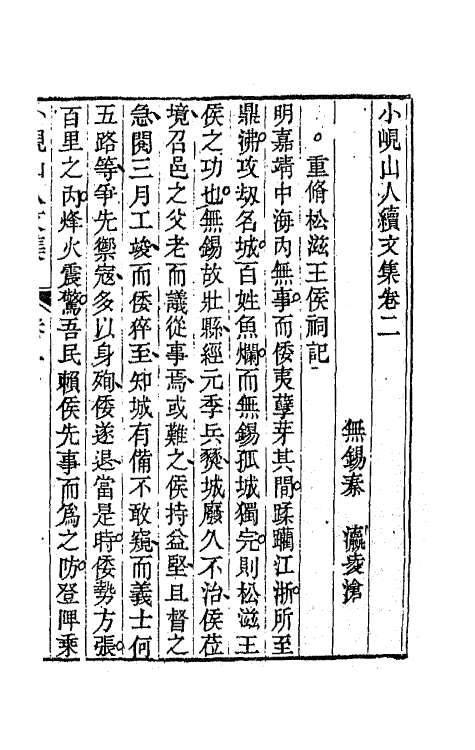 小峴山人續文集卷二
無錫秦 瀛凌滄
重脩松滋王侯祠記
明嘉靖中海内無事而倭夷孽芽其間蹂躪江浙所至
鼎沸攻刼名城百姓魚爛而無錫孤城獨完則松滋王
侯之功也無錫故壯縣經元季兵燹城廢久不治侯莅
境召邑之父老而議從事焉或難之侯持益堅且督之
急閱三月工竣而倭猝至知城有備不敢窺而義士何
五路等爭先禦寇多以身殉倭遂退當是時倭勢方張
百里之内烽火震驚吾民賴侯先事而爲之防登陴乘